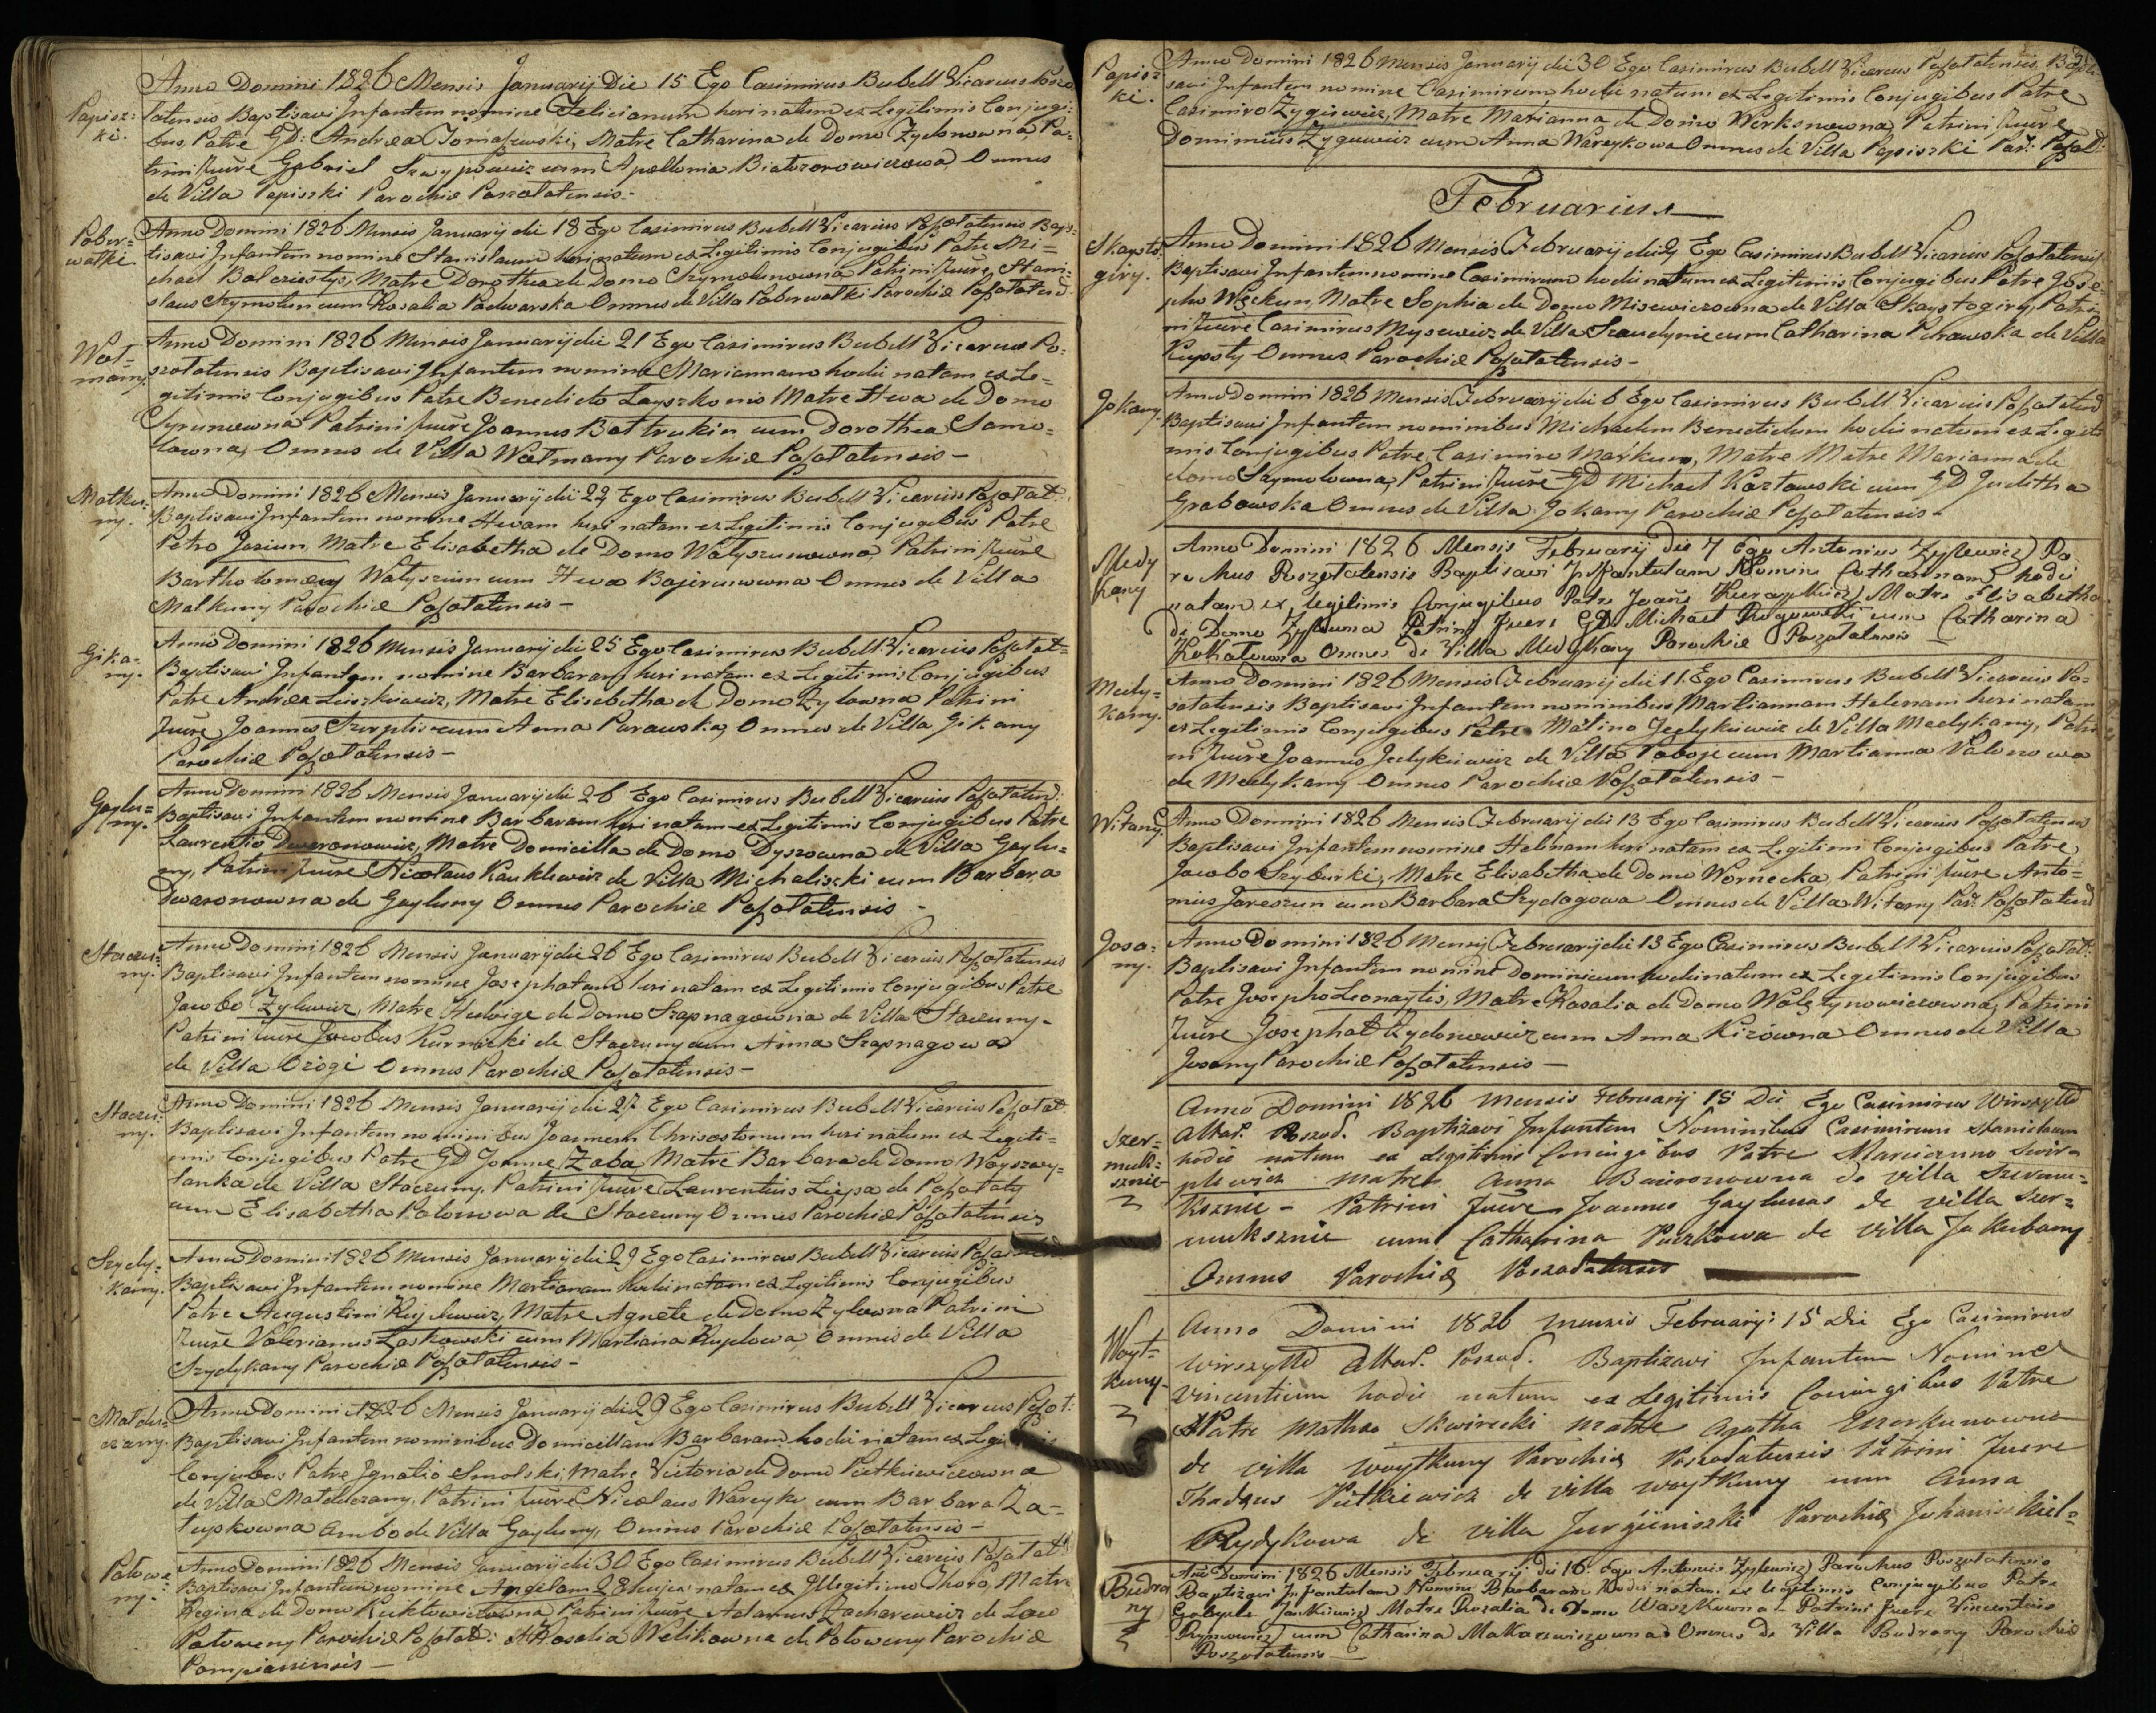 Papisz=
ki.
Anno Domini 1826 Mensis Januarij Die 15 Ego Casimirus Bubell Vicarius Poszo
latensis Baptisavi Infantem nomine Felicianum heri natum ex Legitimis Conjugi=
bus, Patre GD: Andrea Tomaszewski, Matre Catharina de Domo Zydonowna, Pa=
trini fuere Gabriel Szaypowicz cum Apollonia Białozorowiczowa Omnes
de Villa Papiszki Parochiæ Poszołatensis -
Pober=
watki.
Anno Domini 1826 Mensis Januarij die 18 Ego Casimirus Bubell Vicarius Poszołatensis Bap=
tisavi Infantem nomine Stanislaum heri natum ex Legitimis Conjugibus Patre Mi=
chael Balczustys, Matre Dorothea de Domo Szymolunowna Patrini fuere Stani=
slaus Szymolun cum Rosalia Padwarska Omnes de Villa Poberwatki Parochiæ Poszołatens
Wot=
many.
Anno Domini 1826 Mensis Januarij die 21 Ego Casimirus Bubell Vicarius Po=
szołatensis Baptisavi Infantem nomine Mariannam hodie natam ex Le=
gitimis Conjugibus Patre Benedicto Layszkonis Matre Hewa de Domo
Syrunowna Patrini fuere Joannes Bałtrukin cum Dorothea Samo=
łowna, Omnes de Villa Wotmany Parochiæ Poszołatensis -
Małku=
ny.
Anno Domini 1826 Mensis Januarij die 22 Ego Casimirus Bubell Vicarius Poszołat:
Baptisavi Infantem nomine Hewam heri natam ex Legitimis Conjugibus Patre
Petro Jasiun Matre Elisabetha de Domo Watyszunowna Patrini fuere
Bartholomæus Watyszun cum Hewa Bajorunowna Omnes de Villa
Małkuny Parochiæ Poszołatensis -
Gika=
ny.
Anno Domini 1826 Mensis Januarij die 25 Ego Casimirus Bubell Vicarius Poszołat=
Baptisavi Infantem nomine Barbaram heri natam ex Legitimis Conjugibus
Patre Andrea Luszkiewicz, Matre Elisabetha de Domo Zylowna Patrini
fuere Joannes Szurptis cum Anna Purauska, Omnes de Villa Gikany
Parochiæ Poszołatensis -
Gaylu=
ny.
Anno Domini 1826 Mensis Januarij die 26 Ego Casimirus Bubell Vicarius Poszołatens:
Baptisavi Infantem nomine Barbaram heri natam ex Legitimis Conjugibus Patre
Laurentio Dwaronowicz, Matre Domicella de Domo Dyszowna de Villa Gaylu=
ny, Patrini fuere Nicolaus Kauklewicz de Villa Michaliszki cum Barbara
Dwaronowna de Gayluny Omnes Parochiæ Poszołatensis -
Staczu=
ny.
Anno Domini 1826 Mensis Januarij die 26 Ego Casimirus Bubell Vicarius Poszołatensis
Baptisavi Infantem nomine Josephatam heri natam ex Legitimis Conjugibus Patre
Jacobo Zylewicz, Matre Hedwige de Domo Szapnagowna de Villa Staczuny.
Patrini fuere Jacobus Kurnicki de Staczuny cum Anna Szapnagowa
de Villa Ozogi Omnes Parochiæ Poszołatensis -
Staczu=
ny.
Anno Domini 1826 Mensis Januarij die 27 Ego Casimirus Bubell Vicarius Poszołat.
Baptisavi Infantem nominibus Joannem Chrisostomum heri natum ex Legiti=
mis Conjugibus Patre GD Joanne Zaba Matre Barbara de Domo Woyszwy=
łanka de Villa Staczuny. Patrini fuere Laurentius Liepa de Poszołaty
cum Elisabetha Palonowa de Staczuny Omnes Parochiæ Poszołatensis
Szydy=
kany.
Anno Domini 1826 Mensis Januarij die 29 Ego Casimirus Bubell Vicarius
Baptisavi Infantem nomine Martianam hodie natam ex Legitimis Conjugibus
Patre Augustini Kiylewicz, Matre Agnete de Domo Zylowna Patrini
fuere Valerianus Laskowski cum Martiana Kuplowa, Omnes de Villa
Szydykany Parochiæ Poszołatensis -
Mateu=
czany.
Anno Domini 1826 Mensis Januarij die 29 Ego Casimirus Bubell Vicarius Poszoł:
Baptisavi Infantem nominibus Domicellam Barbaram hodie natam ex
Conjubus Patre Ignatio Smolski, Matre Victoria de Domo Pietkiewiczowna
de Villa Mateuczany. Patrini fuere Nicolaus Wareyko cum Barbara Za=
łupkowna ambo de Villa Gayluny, Omnes Parochiæ Poszołatensis -
Połowe
ny.
Anno Domini 1826 Mensis Januarij die 30 Ego Casimirus Bubell Vicarius Poszołat:
Baptisavi Infantem nomine Angelam 28 hujus natam ex Illegitimo Thoro, Matre
Regina de Domo Rukłowiczowna Patrini fuere Adamus Zacharewicz de
Połoweny Parochiæ Poszołat: et Rosalia Welikowna de Połoweny Parochiæ
Pompianensis -
Papisz=
ki.
Anno Domini 1826 Mensis Januarij die 30 Ego Casimirus Bubell Vicarius Poszołatensis Bapti=
savi Infantem nomine Casimirum hodie natum ex Legitimis Conjugibus Patre
Casimiro Zygiewicz, Matre Marianna de Domo Werksnowna, Patrini fuere
Dominicus Zygiewicz cum Anna Wareykowa Omnes de Villa Papiszki Par: Poszoł:
Februarius
Skaysto
giry.
Anno Domini 1826 Mensis Februarij die 2 Ego Casimirus Bubell Vicarius Poszołatensis
Baptisavi Infantem nomine Casimirum hodie natum ex Legitimis Conjugibus Patre Jose=
pho Węckun, Matre Sophia de Domo Misewiczowna de Villa Skaystogiry, Patri=
ni fuere Casimirus Mysewicz de Villa Szaudynie cum Catharina Petrauska de Villa
Kuposty Omnes Parochiæ Poszołatensis -
Jokany.
Anno Domini 1826 Mensis Februarij die 6 Ego Casimirus Bubell Vicarius Poszołatens
Baptisavi Infantem nominibus Michaelem Benedictum hodie natum ex Legiti
mis Conjugibus Patre, Casimiro Markun, Matre Matre Marianna de
domo Szymolowna, Patrini fuere GD Michael Kozłowski cum GD Juditha
Grabowska Omnes de Villa Jokany Parochiæ Poszołatensis -
Medy
kany
Anno Domini 1826 Mensis Februarij die 7 Ego Antonius Zyplewicz Pa
rochus Poszołatensis Baptisavi Infantulam Nomine Catharinam hodie
natam ex legitimis Conjugibus Patre Joañe Matre Elisabetha
de Domo Patrini fuere GD Michael Rogowski cum Catharina
Omnes de Villa Medykany Parochiæ Poszołatensis
Medy=
kany.
Anno Domini 1826 Mensis Februarij die 11 Ego Casimirus Bubell Vicarius Po=
szołatensis Baptisavi Infantem nominibus Martiannam Helenam heri natam
ex Legitimis Conjugibus Patre Matino Jedykiewicz de Villa Medykany, Patri
ni fuere Joannes Jedykiewicz de Villa Poboje cum Martianna Palonowa
de Medykany Omnes Parochiæ Poszołatensis -
Witany.
Anno Domini 1826 Mensis Februarij die 13 Ego Casimirus Bubell Vicarius Poszołatensis
Baptisavi Infantem nomine Helenam heri natam ex Legitimi Conjugibus Patre
Jacobo Szyburki, Matre Elisabetha de Domo Wornecka, Patrini fuere Anto=
nius Jareszun cum Barbara Szydagowa Omnes de Villa Witany Par: Poszołatens
Joso=
ny.
Anno Domini 1826 Mensis Februarij die 13 Ego Casimirus Bubell Vicarius Poszołat:
Baptisavi Infantem nomine Dominicum hodie natum ex Legitimis Conjugibus
Patre Josepho Leonaytis, Matre Rosalia de Domo Walętynowiczowna, Patrini
fuere Josephat Zydonowicz cum Anna Kirowna Omnes de Villa
Josany Parochiæ Poszołatensis -
Szer=
muk=
sznie
Anno Domini 1826 Mensis Februarij 15 Die Ego Casimirus Wirszyłło
Altar. Poszoł. Baptizavi Infantem Nominibus Casimirum Stanislaum
hodie natum ex legitimis Conjugibus Patre Marcianno Swir=
plewicz matre Anna Baironowna de villa Szermu=
ksznie - Patrini fuere Joannes Gaylunas de villa Szer=
muksznie cum Catharina Puczkowa de villa Jakubany
Omnes Parochiæ
Woyt=
kuny
Anno Domini 1826 Mensis Februarij: 15 Die Ego Casimirus
Wirszyłło Altar. Poszoł. Baptizavi Infantem Nomine
Vincentium hodie natum ex Legitimis Coniugibus Patre
Patre Matheo Skwirecki matre Agatha
de villa Woytkuny Parochiæ Poszołatensis Patrini fuere
Thadæus Pietkiewicz de villa Woytkuny cum Anna
Rydykowa de villa Jurgieniszki Parochiæ Johaniszkiel=
Budra
ny
Añō Domini 1826 Mensis Februarij die 16. Ego Antonius Zyplewicz Parochus Poszołatensis
Baptizavi Infantulam Nomine Barbaram hodie natam ex legitimis Conjugibus Patre
Gabryele Jankiewicz Matre Rozalia de Domo Waszkowna - Patrini fuere Vincentius
Rymowicz cum Catharina Makarewiczowna Omnes de Villa Budrany Parochiæ
Poszołatensis